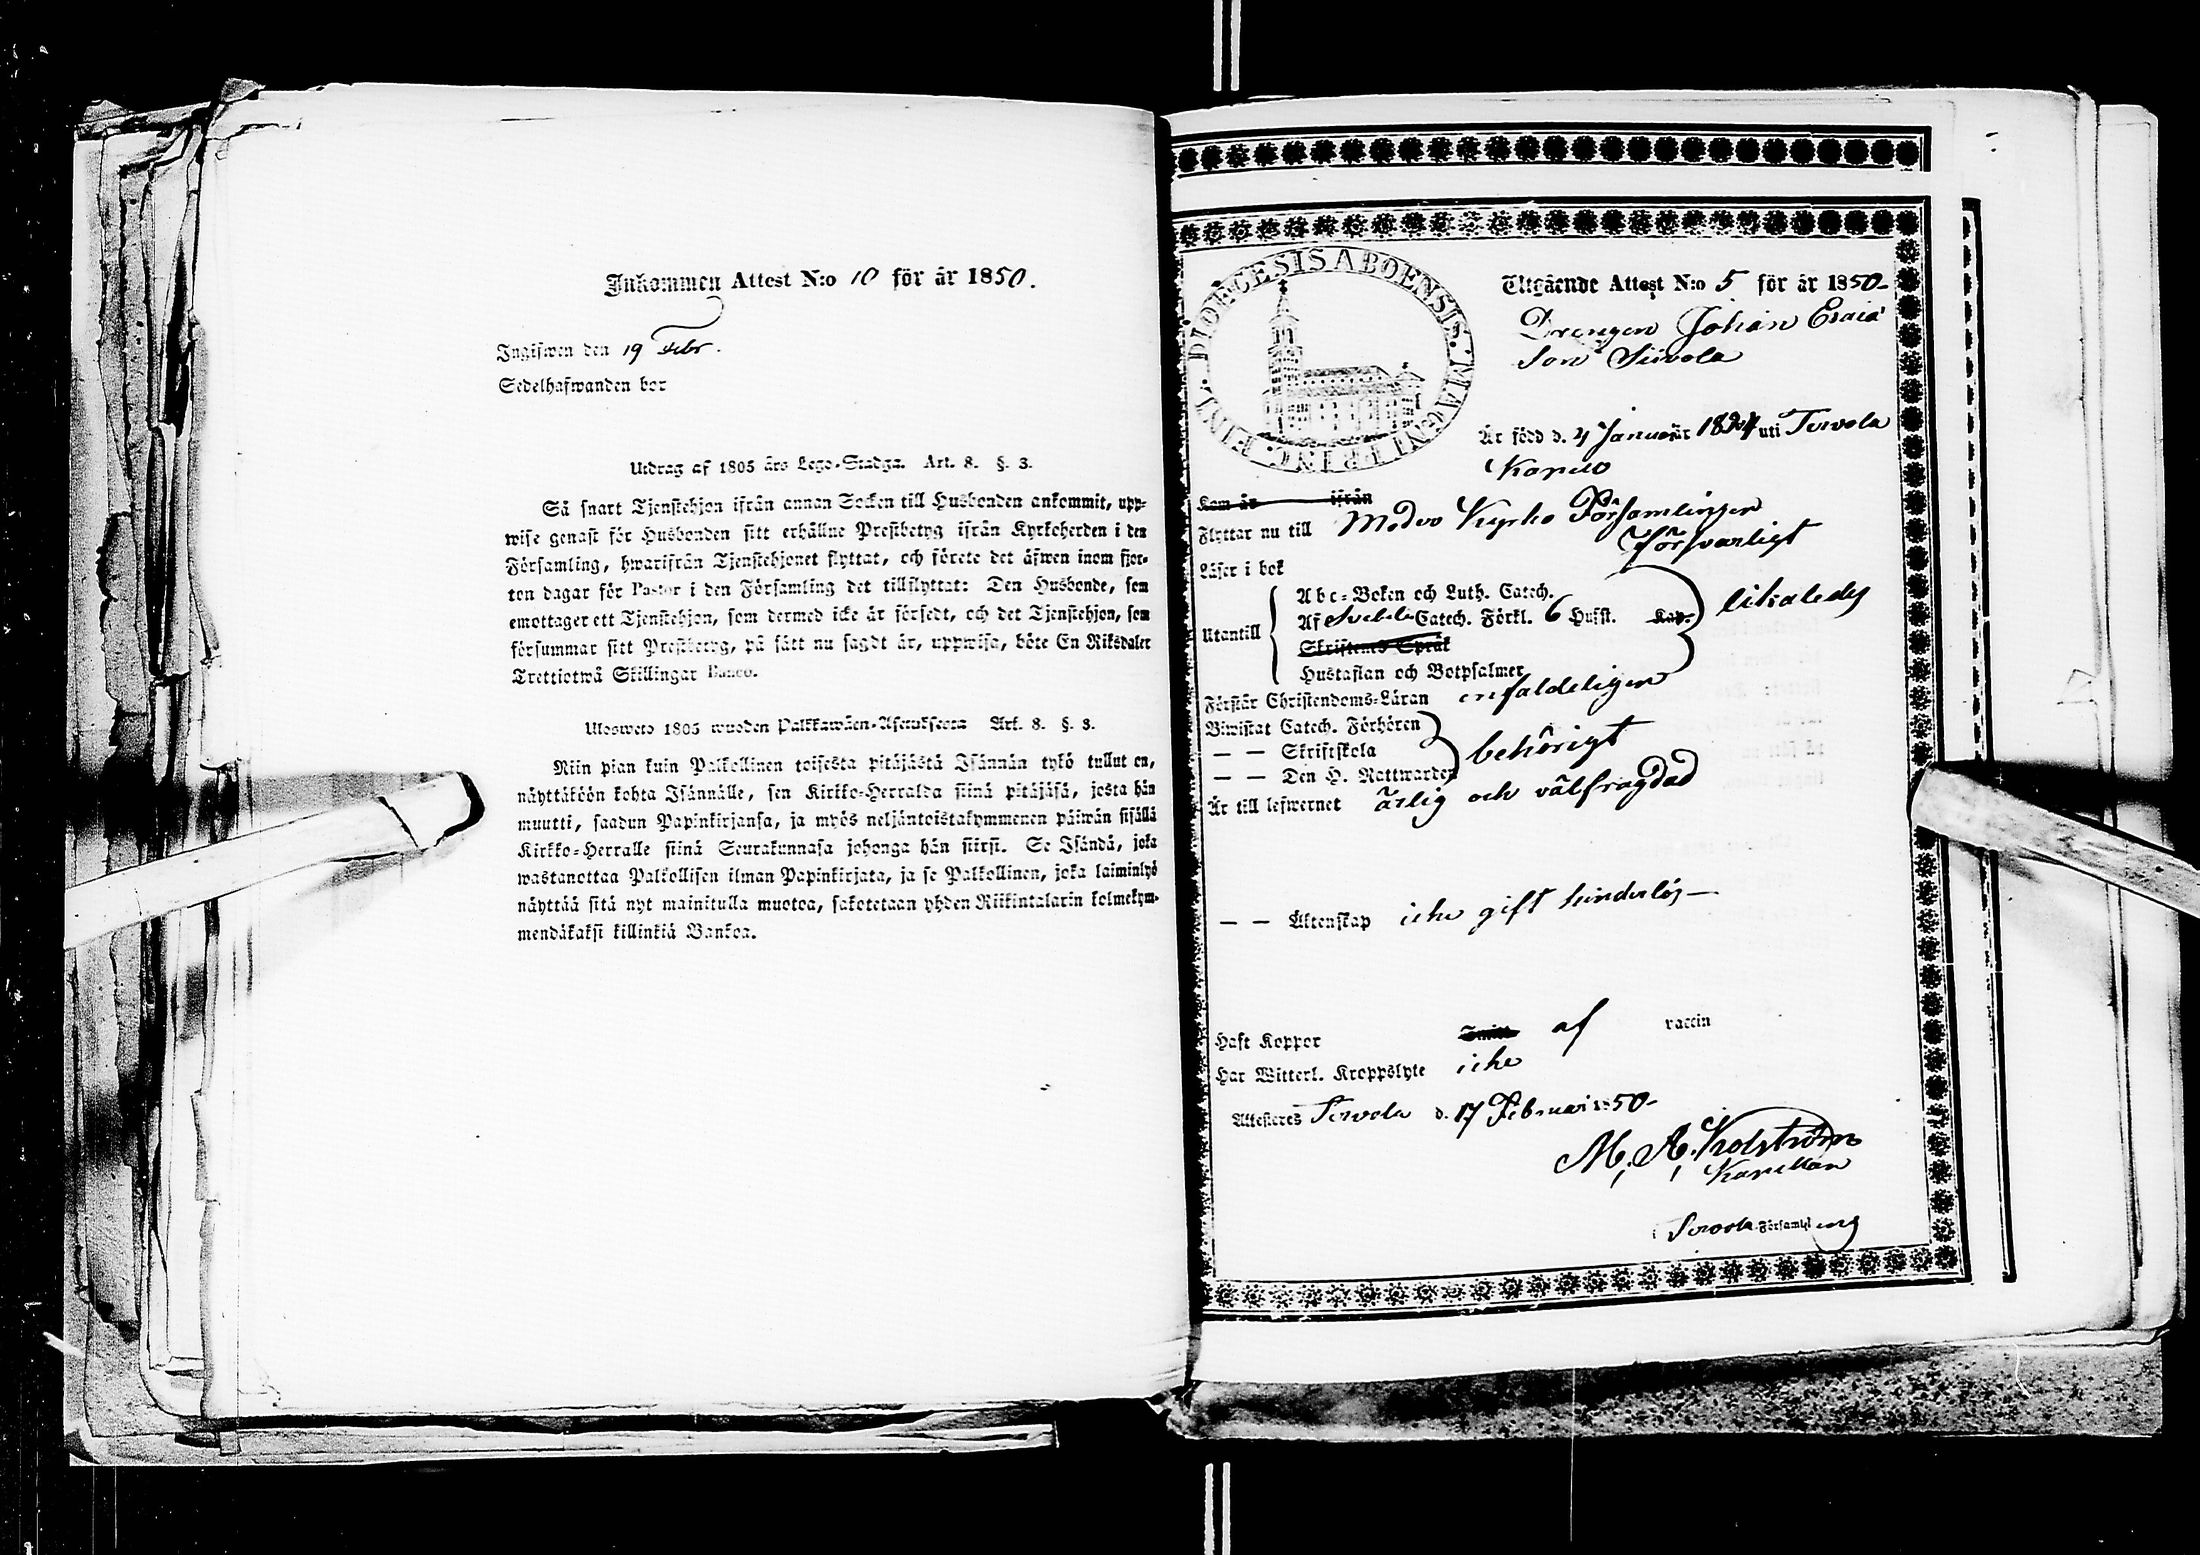 Inkommen Attest N:o 10 för år 1850.
Ingifwen den 19 Febr.
Sedelhafwanden bor
Utdrag af 1805 års Lego-Stadga. Art. 8. §. 3.
Så snart Tjenstehjon ifrån annan Socken till Husbonden ankommit, upp-
wise genast för Husbonden sitt erhållne Prestbetyg ifrån Kyrkoherden i den
Församling, hwarifrån Tjenstehjonet flyttat, och förete det äfwen inom fjor-
ton dagar för Pastor i den Församling det tillflyttat: Den Husbonde, som
emottager ett Tjenstehjon, som dermed icke är försedt, och det Tjenstehjon, som
försummar sitt Prestbetyg, på sätt nu sagdt är, uppwisa, böte En Riksdaler
Trettiotwå Skillingar Banco.
Ulosweto 1805 wuoden Palkkawäen-Asetuksesta Art. 8. §. 3.
Niin pian kuin Palkollinen toisesta pitäjästä Isännän tykö tullut on,
näyttäköön kohta Isännälle, sen Kirkko-Herralda siinä pitäjäsä, josta hän
muutti, saadun Papinkirjansa, ja myös neljäntoistakymmenen päiwän sisällä
Kirkko-Herralle siinä Seurakunnasa johonga hän siirsi. Se Isändä, joka
wastanottaa Palkollisen ilman Papinkirjata, ja se Palkollinen, joka laiminlyö
näyttää sitä nyt mainitulla muotoa, sakotetaan yhden Riikintalarin kolmekym-
mendäkaksi killinkiä Bankoa.
DIOECESIS ABOENSIS. IMAGNI PRINC. FINL.
Utgående Attest N:o 5 för år 1850-
Drengen Johan Esaia
Son Siivola
Är född d. 4 Januar är 1824 uti Terwola
Kapell
Kom år ifrån
Flyttar nu till Medvo Kyrko Församlingen
Läser i bok försvarligt
Utantill
Abc-Boken och Luth. Catech.
Af Svebeli Catech. Förkl. 6 Hufst. Kap. likaledes
Skriftens Språk
Hustaflan och Botpsalmer
Förstår Christendoms-Läran enfaldeligen
Biwistat Catech. Förhören
— — Skriftskola behörigt
— — Den H. Nattwarden
Är till lefwernet ärlig och välfrägdad
— — Äktenskap icke gift hinderlös —
Haft Koppor Smitt af vaccin
Har Witterl. Kroppslyte icke
Attesteres Terwola d. 17 Februari 1850-
M. A. Holström
Kapellan
i Terwola Församling